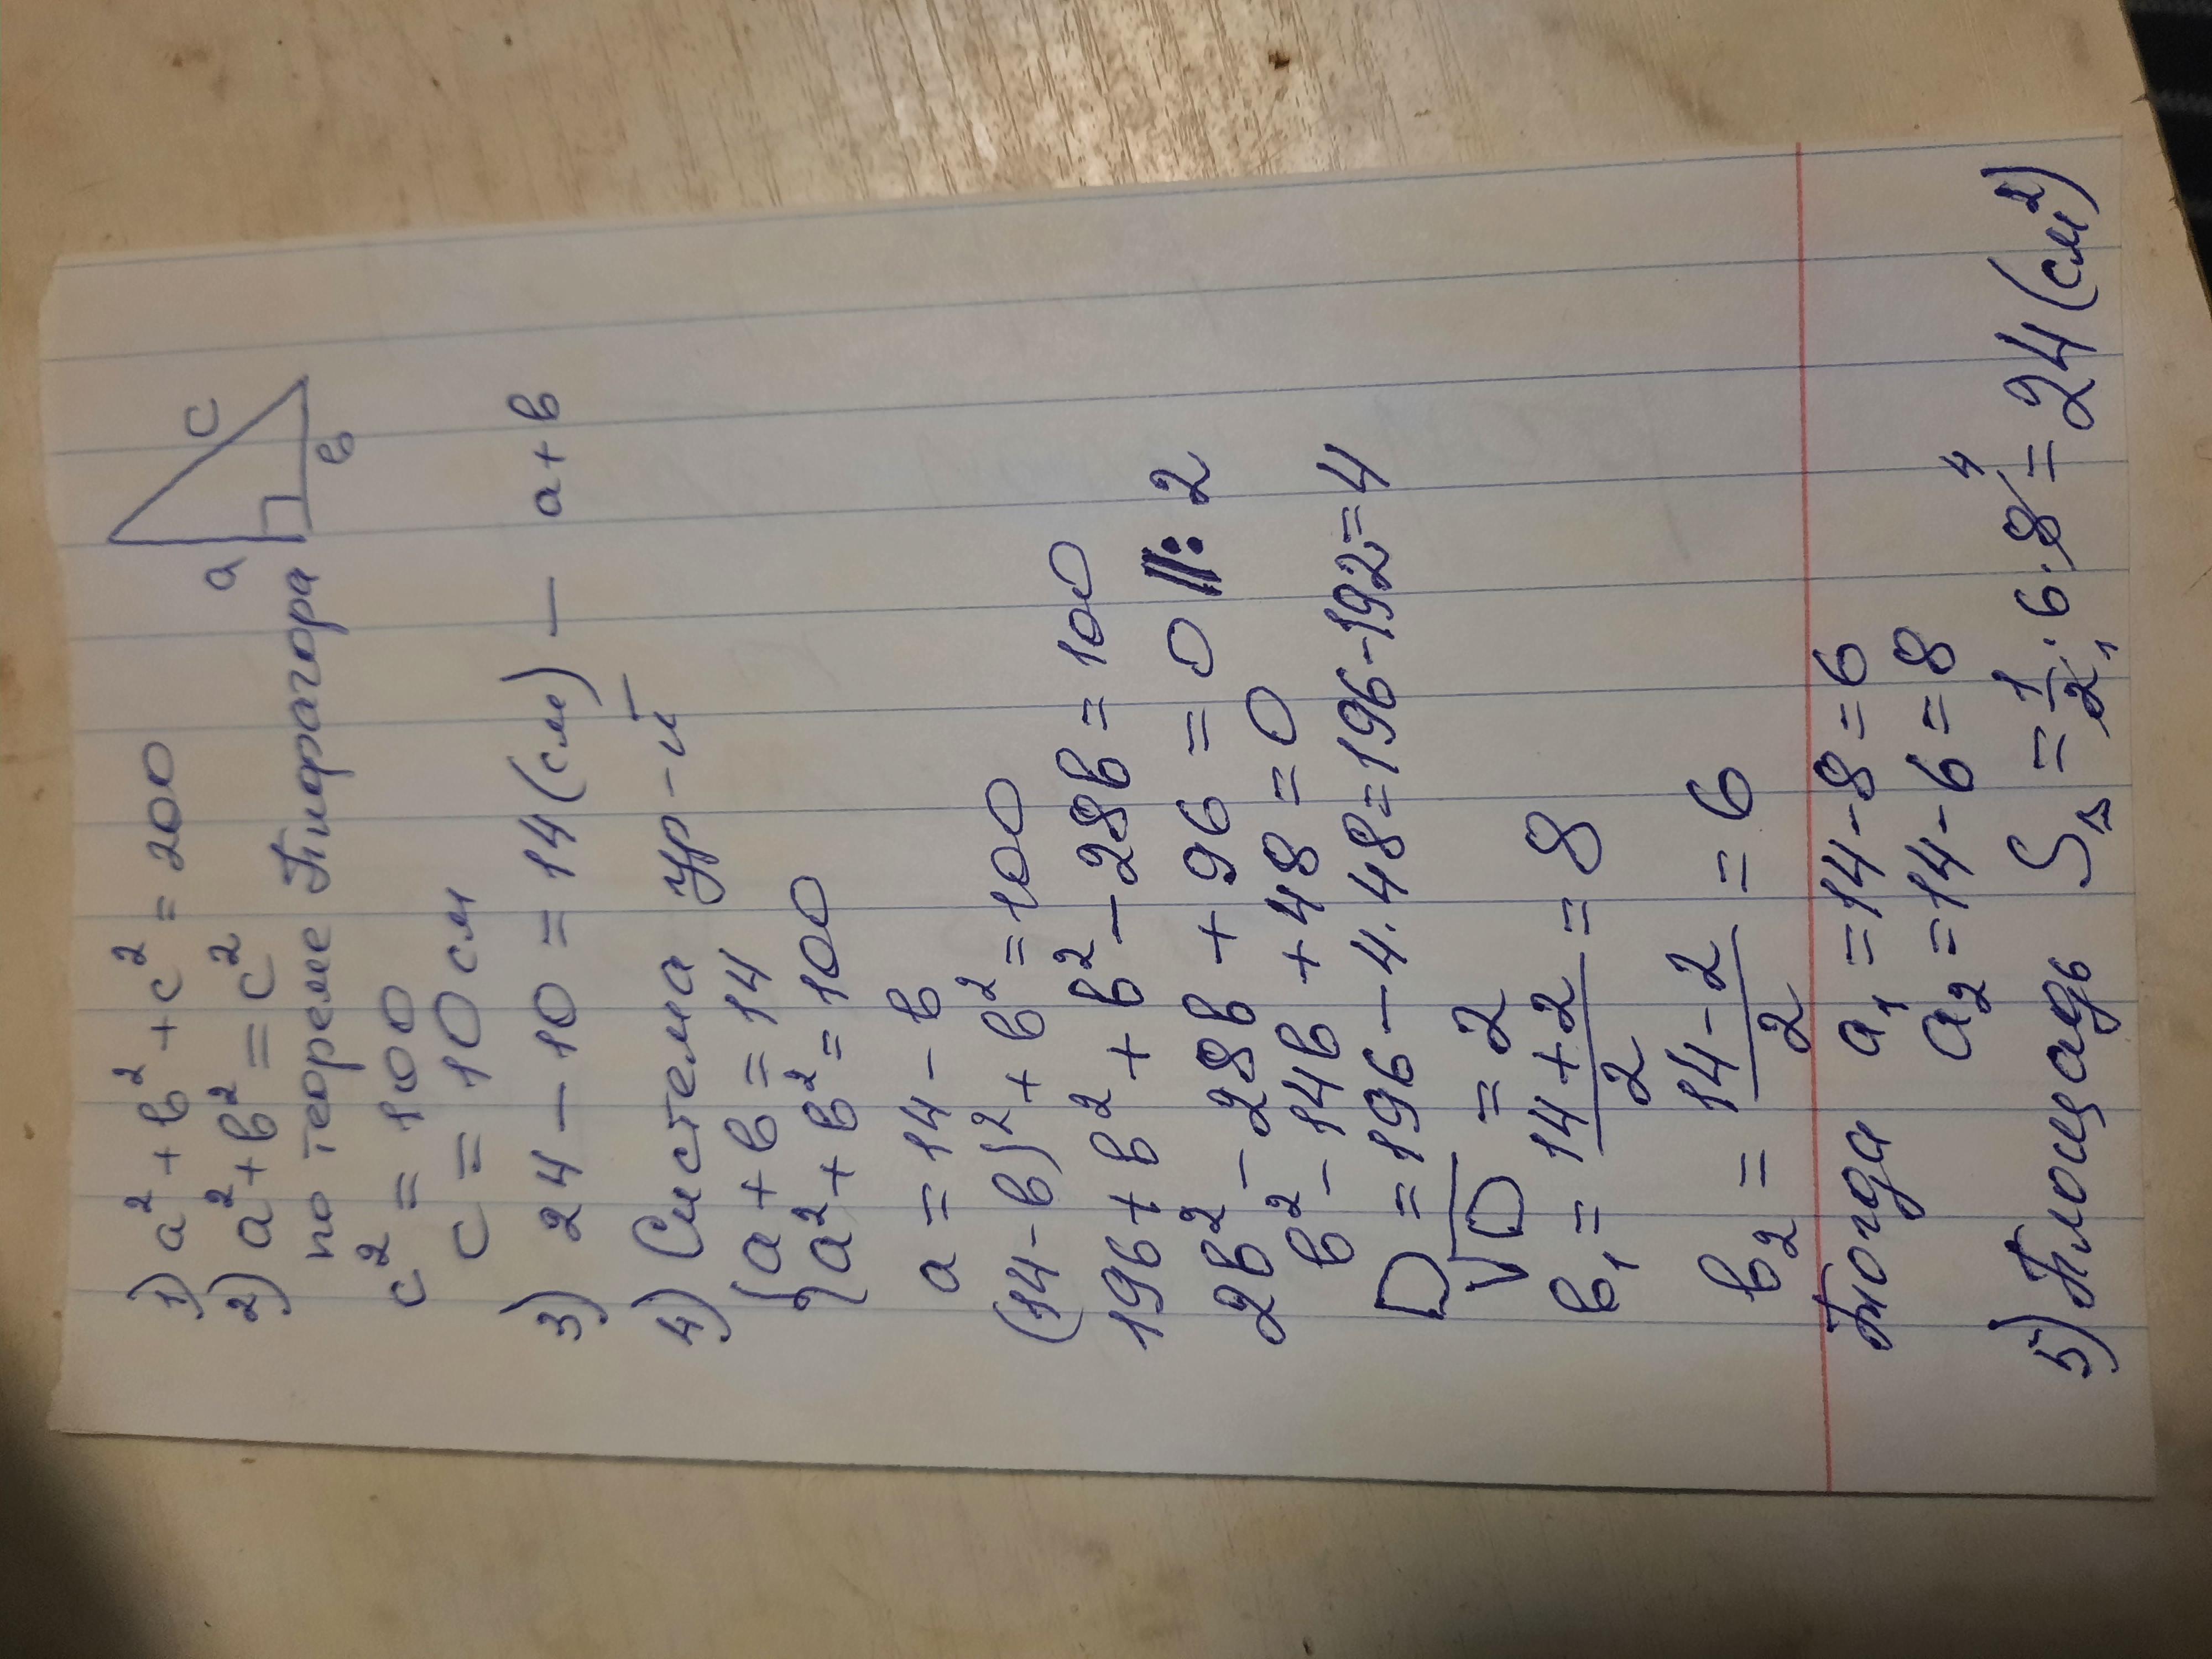 1) a² + b² + c² = 200
2) a² + b² = c²
по теореме Пифагора
a
c
b
c² = 100
c = 10 см
3) 24 – 10 = 14 (см) — a + b
4) Система ур-й
{ a + b = 14
a² + b² = 100
a = 14 – b
(14 – b)² + b² = 100
196 + b² + b² – 28b = 100
2b² – 28b + 96 = 0 ||: 2
b² – 14b + 48 = 0
D = 196 – 4·48 = 196 – 192 = 4
√D = 2
b₁ = (14 + 2)/2 = 8
b₂ = (14 – 2)/2 = 6
Тогда a₁ = 14 – 8 = 6
a₂ = 14 – 6 = 8
5) Площадь S▵ = 1/2₁ · 6 · 8⁴ = 24 (см²)